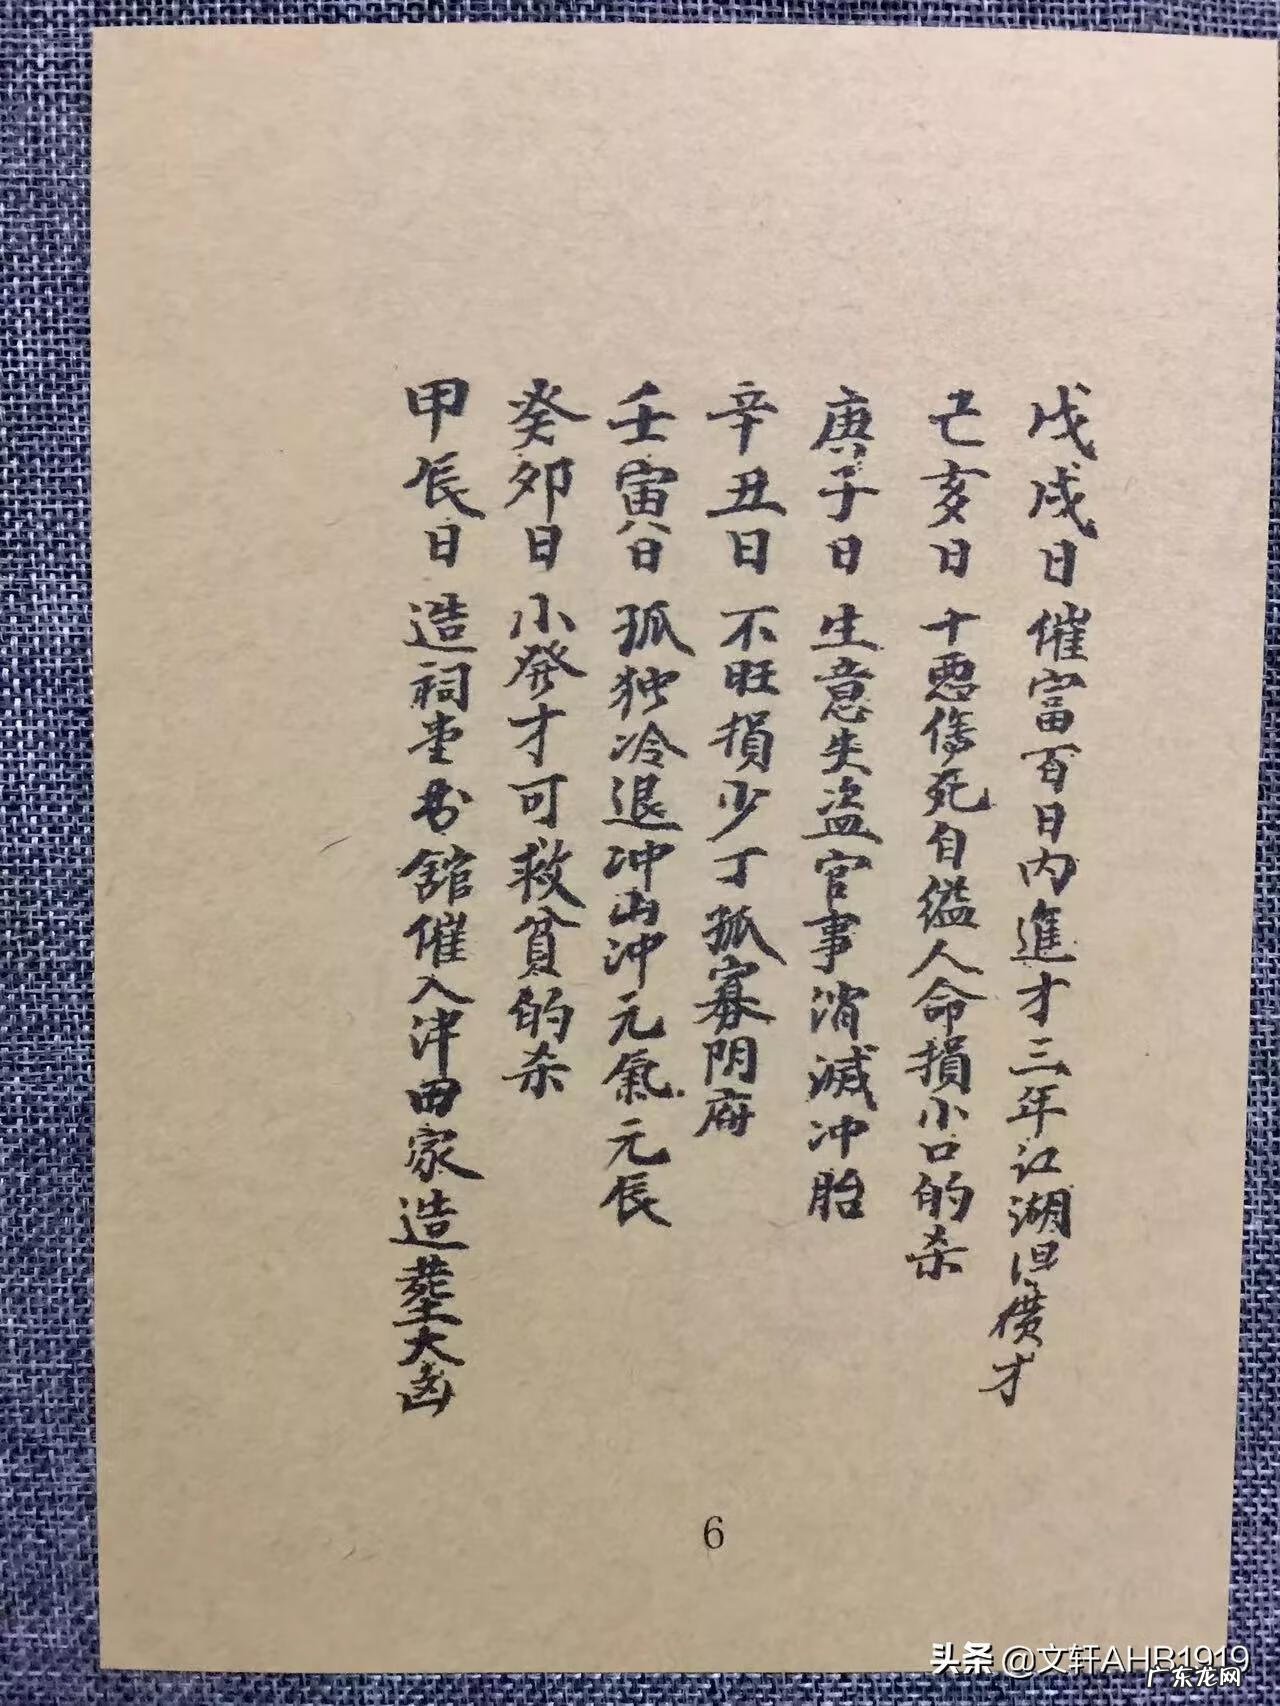 戊戌日催富百日内進才三年江湖得横才
己亥日十恶傷死自缢人命損小口的杀
庚子日生意失盗官事消滅冲胎
辛丑日不旺損少丁孤寡阴府
壬寅日孤独冷退冲山冲元氣元辰
癸卯日小發才可救貧的杀
甲辰日造祠堂书舘催入津田家造塟大凶
6
头条 @文轩AHB1919
广东龙网